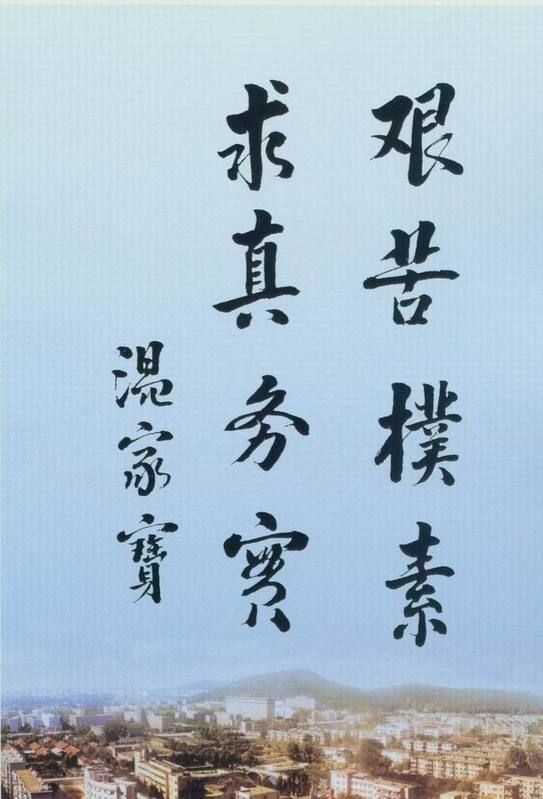 艰苦樸素
求真务实
温家寳